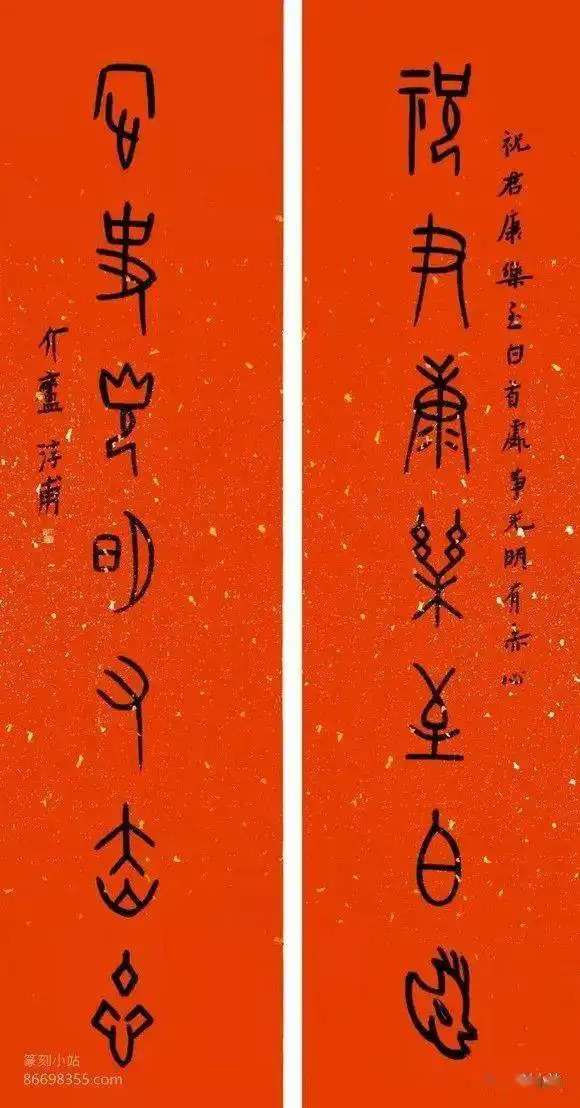 祝君康樂至白首處事光明有赤心
祝君康樂至白首
處事光明有赤心
介
篆刻小站
86698355.com